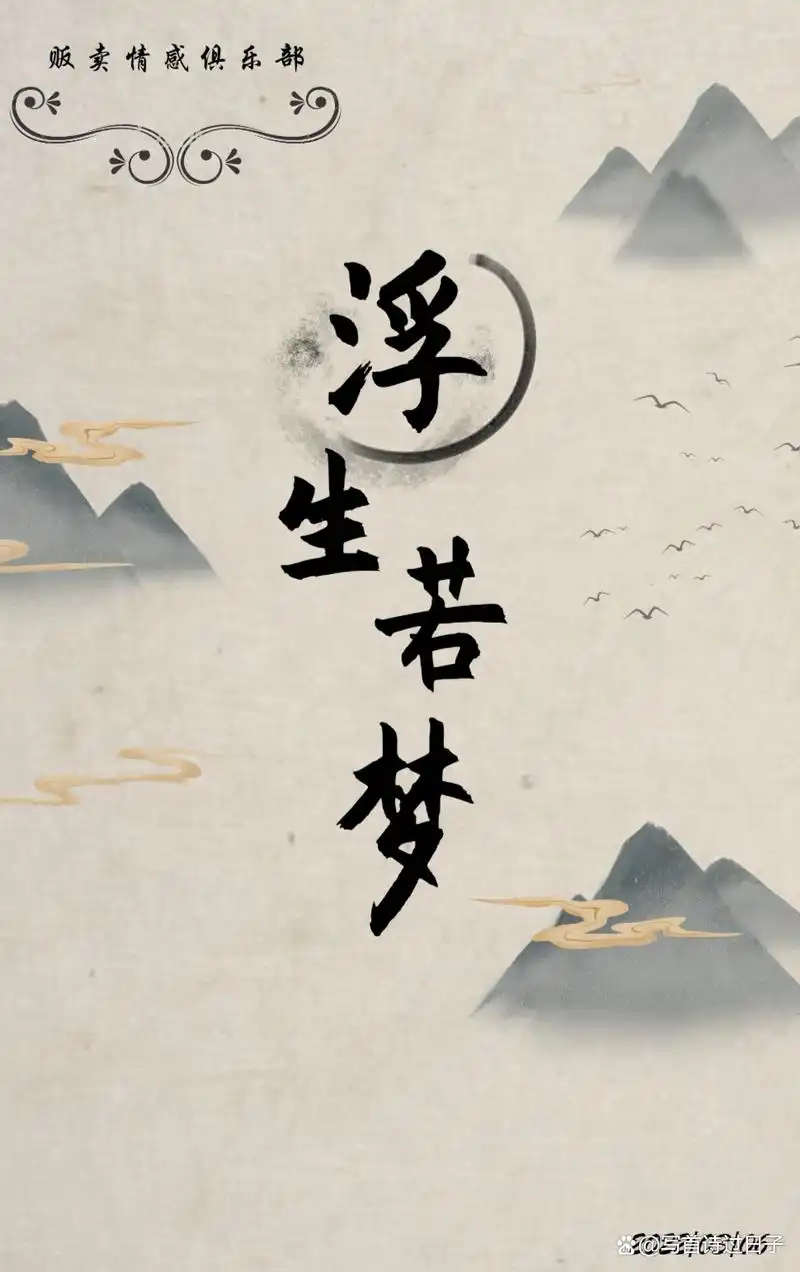 贩卖情感俱乐部
浮生若梦
@写首诗过日子